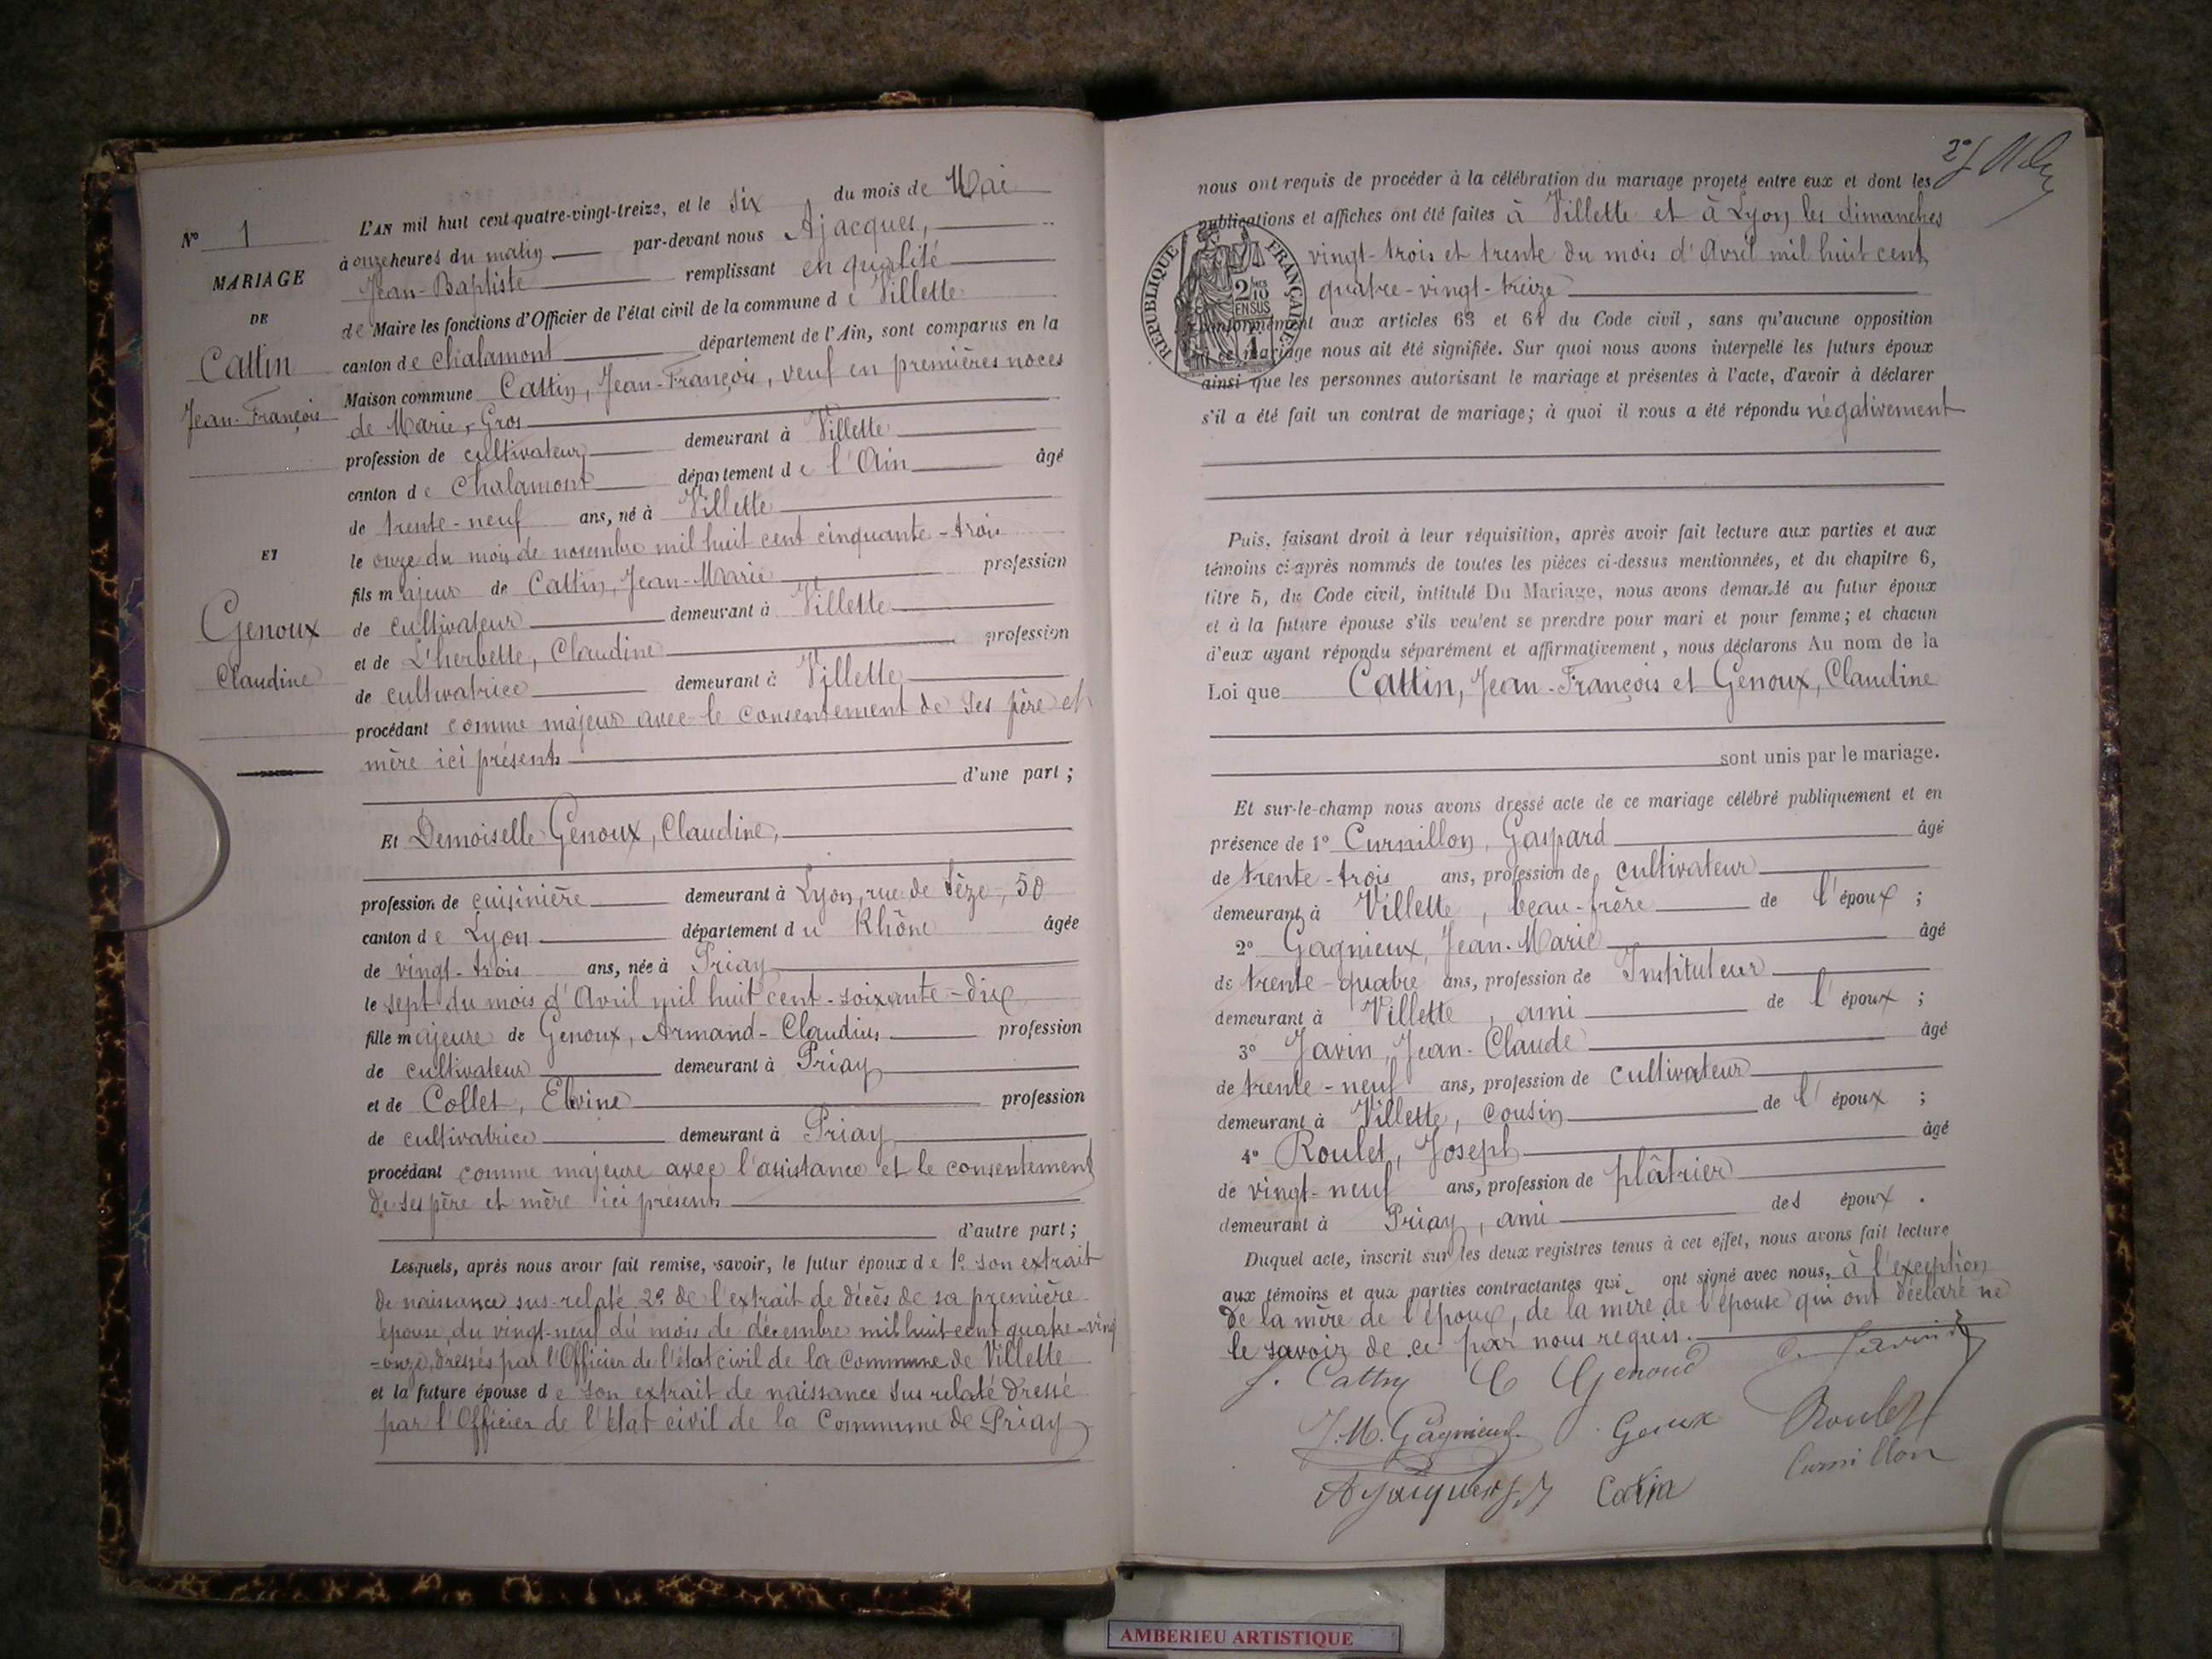 N° 1
MARIAGE
DE
Cattin
Jean-François
ET
Genoux
Claudine
L'AN mil huit cent quatre-vingt-treize, et le six du mois de Mai
à onze heures du matin par-devant nous Ajacques,
Jean-Baptiste remplissant en qualité
de Maire les fonctions d'Officier de l'état civil de la commune de Villette
canton de Chalamont département de l'Ain, sont comparus en la
Maison commune Cattin, Jean-François, veuf en premières noces
de Marie, Gros
profession de cultivateur demeurant à Villette
canton de Chalamont département de l'Ain âgé
de trente-neuf ans, né à Villette
le onze du mois de novembre mil huit cent cinquante-trois
fils majeur de Cattin, Jean-Marie profession
de cultivateur demeurant à Villette
et de L'herbette, Claudine profession
de cultivatrice demeurant à Villette
procédant comme majeur avec le consentement de ses père et
mère ici présents
d'une part ;
Et Demoiselle Genoux, Claudine,
profession de cuisinière demeurant à Lyon, rue de Sèze, 50
canton de Lyon département du Rhône âgée
de vingt-trois ans, née à Priay
le sept du mois d'Avril mil huit cent-soixante-dix
fille majeure de Genoux, Armand-Claudius profession
de cultivateur demeurant à Priay
et de Collet, profession
de cultivatrice demeurant à Priay
procédant comme majeure avec l'assistance et le consentement
de ses père et mère ici présents
d'autre part ;
Lesquels, après nous avoir fait remise, savoir, le futur époux de 1° son extrait
de naissance sus-relaté 2° de l'extrait de décès de sa première
épouse, du vingt-neuf du mois de décembre mil huit-cent quatre-vingt
=onze, dressés par l'Officier de l'état civil de la Commune de Villette
et la future épouse de son extrait de naissance sus relaté dressé
par l'Officier de l'état civil de la Commune de Priay
2e
nous ont requis de procéder à la célébration du mariage projeté entre eux et dont les
publications et affiches ont été faites à Villette et à Lyon les dimanches
vingt-trois et trente du mois d'Avril mil huit cent
quatre-vingt-treize
RÉPUBLIQUE FRANÇAISE
2/10 EN SUS
conformément aux articles 63 et 64 du Code civil, sans qu'aucune opposition
à ce mariage nous ait été signifiée. Sur quoi nous avons interpellé les futurs époux
ainsi que les personnes autorisant le mariage et présentes à l'acte, d'avoir à déclarer
s'il a été fait un contrat de mariage; à quoi il nous a été répondu négativement
Puis, faisant droit à leur réquisition, après avoir fait lecture aux parties et aux
témoins ci-après nommés de toutes les pièces ci-dessus mentionnées, et du chapitre 6,
titre 5, du Code civil, intitulé Du Mariage, nous avons demandé au futur époux
et à la future épouse s'ils veulent se prendre pour mari et pour femme; et chacun
d'eux ayant répondu séparément et affirmativement, nous déclarons Au nom de la
Loi que Cattin, Jean-François et Genoux, Claudine
sont unis par le mariage.
Et sur-le-champ nous avons dressé acte de ce mariage célébré publiquement et en
présence de 1° Curnillon, Gaspard âgé
de trente-trois ans, profession de cultivateur
demeurant à Villette, beau-frère de l'époux ;
2° Gagnieux, Jean-Marie âgé
de trente-quatre ans, profession de Instituteur
demeurant à Villette, ami de l'époux ;
3° Javin, Jean-Claude âgé
de trente-neuf ans, profession de cultivateur
demeurant à Villette, cousin de l'époux ;
4° Roulet, Joseph âgé
de vingt-neuf ans, profession de plâtrier
demeurant à Priay, ami des époux.
Duquel acte, inscrit sur les deux registres tenus à cet effet, nous avons fait lecture
aux témoins et aux parties contractantes qui ont signé avec nous, à l'exception
de la mère de l'époux, de la mère de l'épouse qui ont déclaré ne
le savoir de ce par nous requis.
J. Cattin C Genoud C. Javin
J.M. Gagnieux Genoux Roulet
Ajacques J.B Catin Curnillon
AMBERIEU ARTISTIQUE